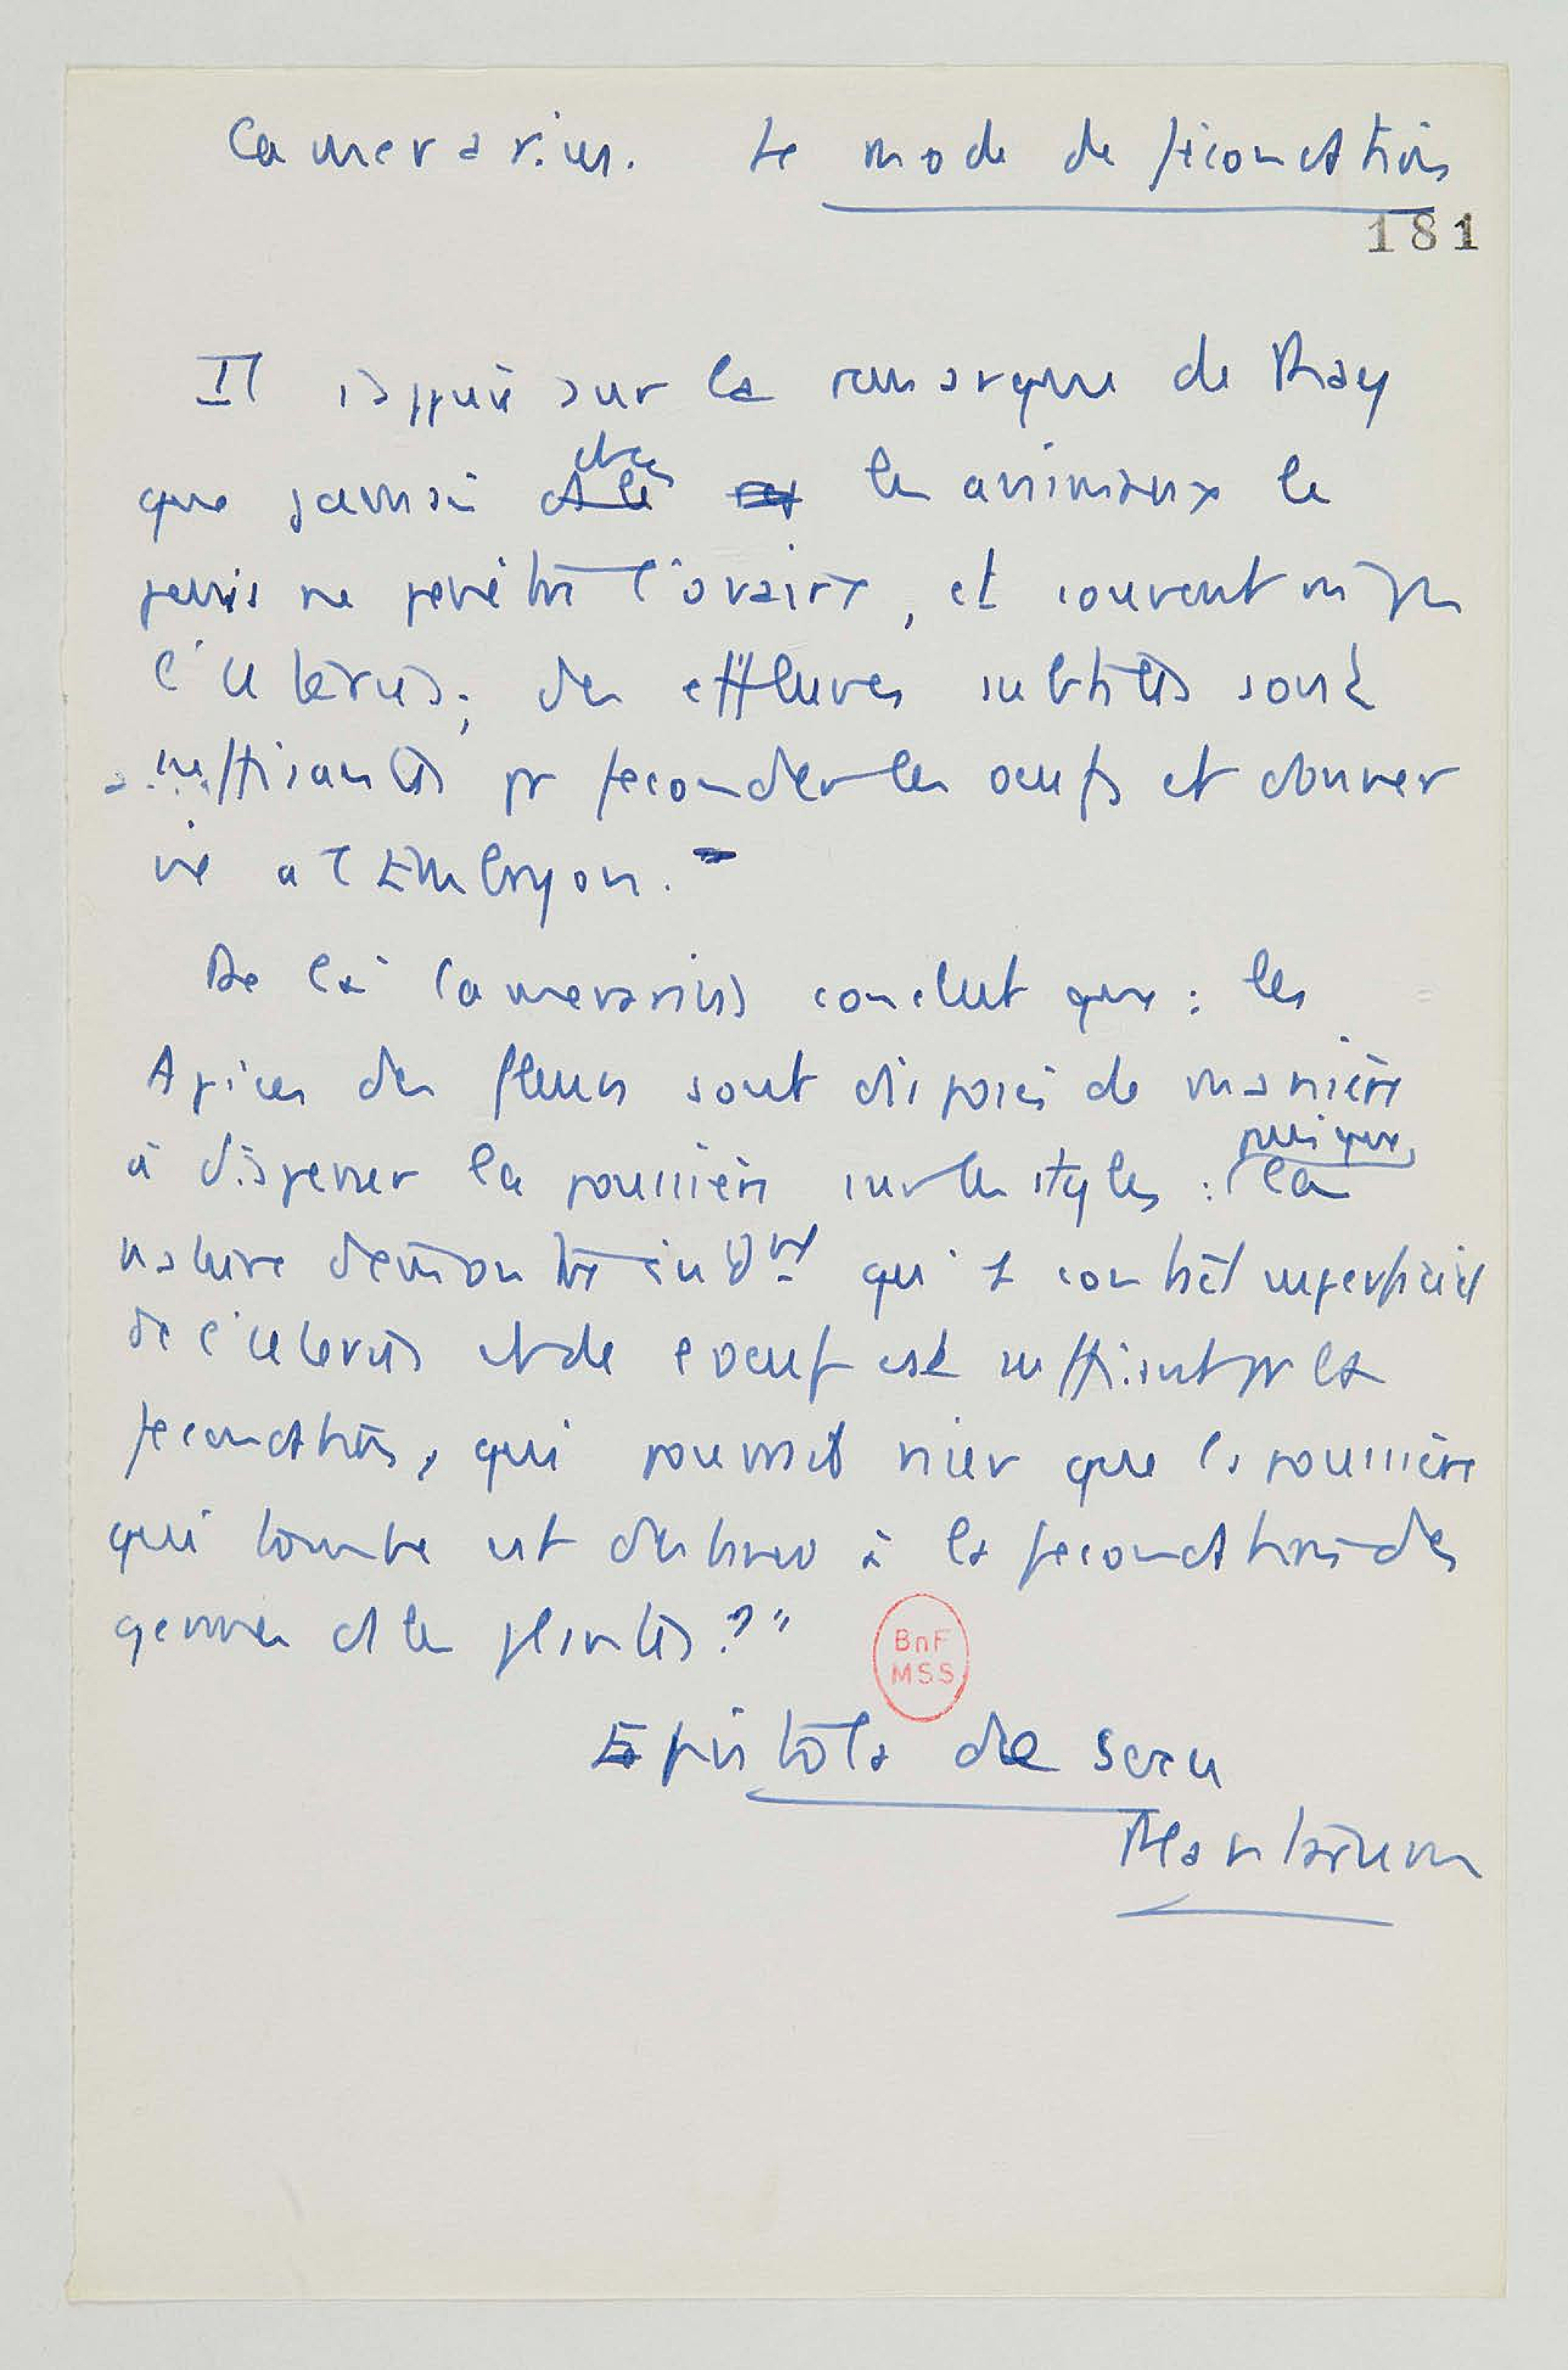 Camerarius. Le mode de fécondation
181
Il s'appuie sur la remarque de Ray
que jamais chez les animaux le
penis ne penêtre l'ovaire, et souvent
l'uterus; des effluves subtiles sont
suffisantes pr feconder les oeufs et donner
vie a l'Embryon.
De là Camerarius conclut que : les
Apices des fleurs sont disposés de manière
à disperser la poussière sur les styles : "puisque la
nature demontre qu' 1 contact superficiel
de l'uterus et de l'oeuf est suffisant pr la
fecondation, qui pourrait nier que la poussière
qui tombe est destinée à la fecondation des
germes des plantes ?"
BnF
MSS
Epistola de sexu
Plantarum